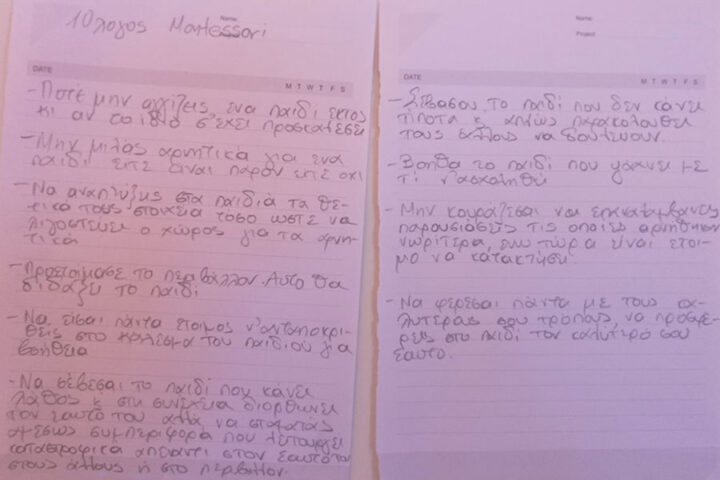 10λογος Montessori
Name
DATE
M T W T F S
- Ποτέ μην αγγίζεις ένα παιδί εκτός
κι αν το ίδιο σ'έχει προσκαλέσει
- Μην μιλάς αρνητικά για ένα
παιδί είτε είναι παρόν είτε όχι
- Να αναπτύξης στα παιδιά τα θε-
τικά τους στοιχεία τόσο ώστε να
λιγοστεύει ο χώρος για τα αρνη-
τικά
- Προετοίμασε το περιβάλλον. Αυτό θα
διδάξει το παιδί
- Να είσαι πάντα έτοιμος ν'ανταποκρι-
θείς στο κάλεσμα του παιδιού για
βοήθεια
- Να σέβεσαι το παιδί που κάνει
λάθος κ στη συνέχεια διορθώνει
τον εαυτό του αλλά να σταματάς
αμέσως συμπεριφορά που λειτουργεί
καταστροφικά απέναντι στον εαυτό του
στους άλλους ή στο περιβάλλον.
Name
Project
DATE
M T W T F S
- Σεβάσου το παιδί που δεν κάνει
τίποτα κ απλώς παρακολουθεί
τους άλλους να δουλεύουν.
- Βοήθα το παιδί που ψάχνει με
τι ν'ασχοληθεί
- Μην κουράζεσαι να επαναλαμβάνεις
παρουσιάσεις τις οποίες αρνήθηκαν
νωρίτερα, ενώ τώρα είναι έτοι-
μο να κατακτήσει
- Να φέρεσαι πάντα με τους κα-
λύτερους σου τρόπους, να προσφέ-
ρεις στο παιδί τον καλύτερό σου
εαυτό.